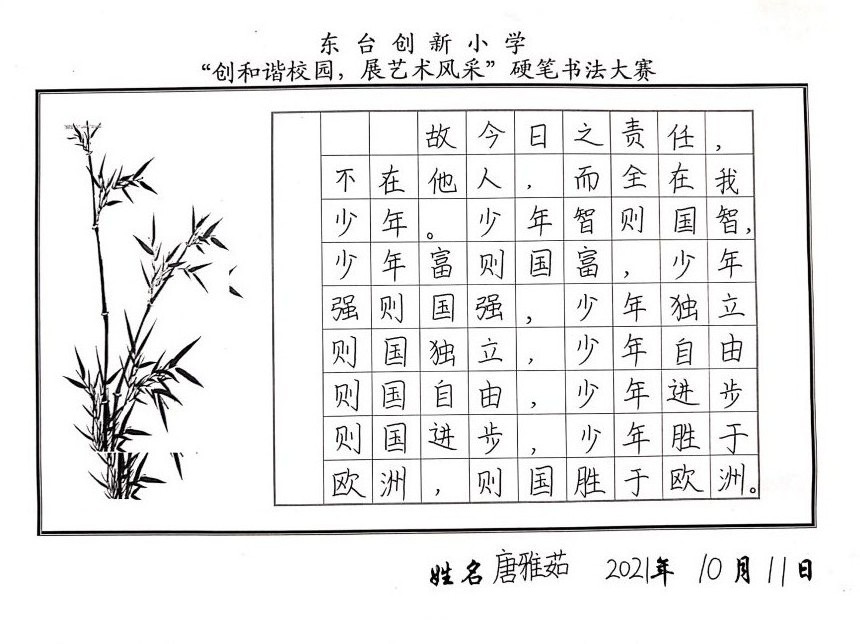 东台创新小学
“创和谐校园，展艺术风采”硬笔书法大赛
故今日之责任，
不在他人，而全在我
少年。少年智则国智，
少年富则国富，少年
强则国强，少年独立
则国独立，少年自由
则国自由，少年进步
则国进步，少年胜于
欧洲，则国胜于欧洲。
姓名唐雅茹 2021年10月11日